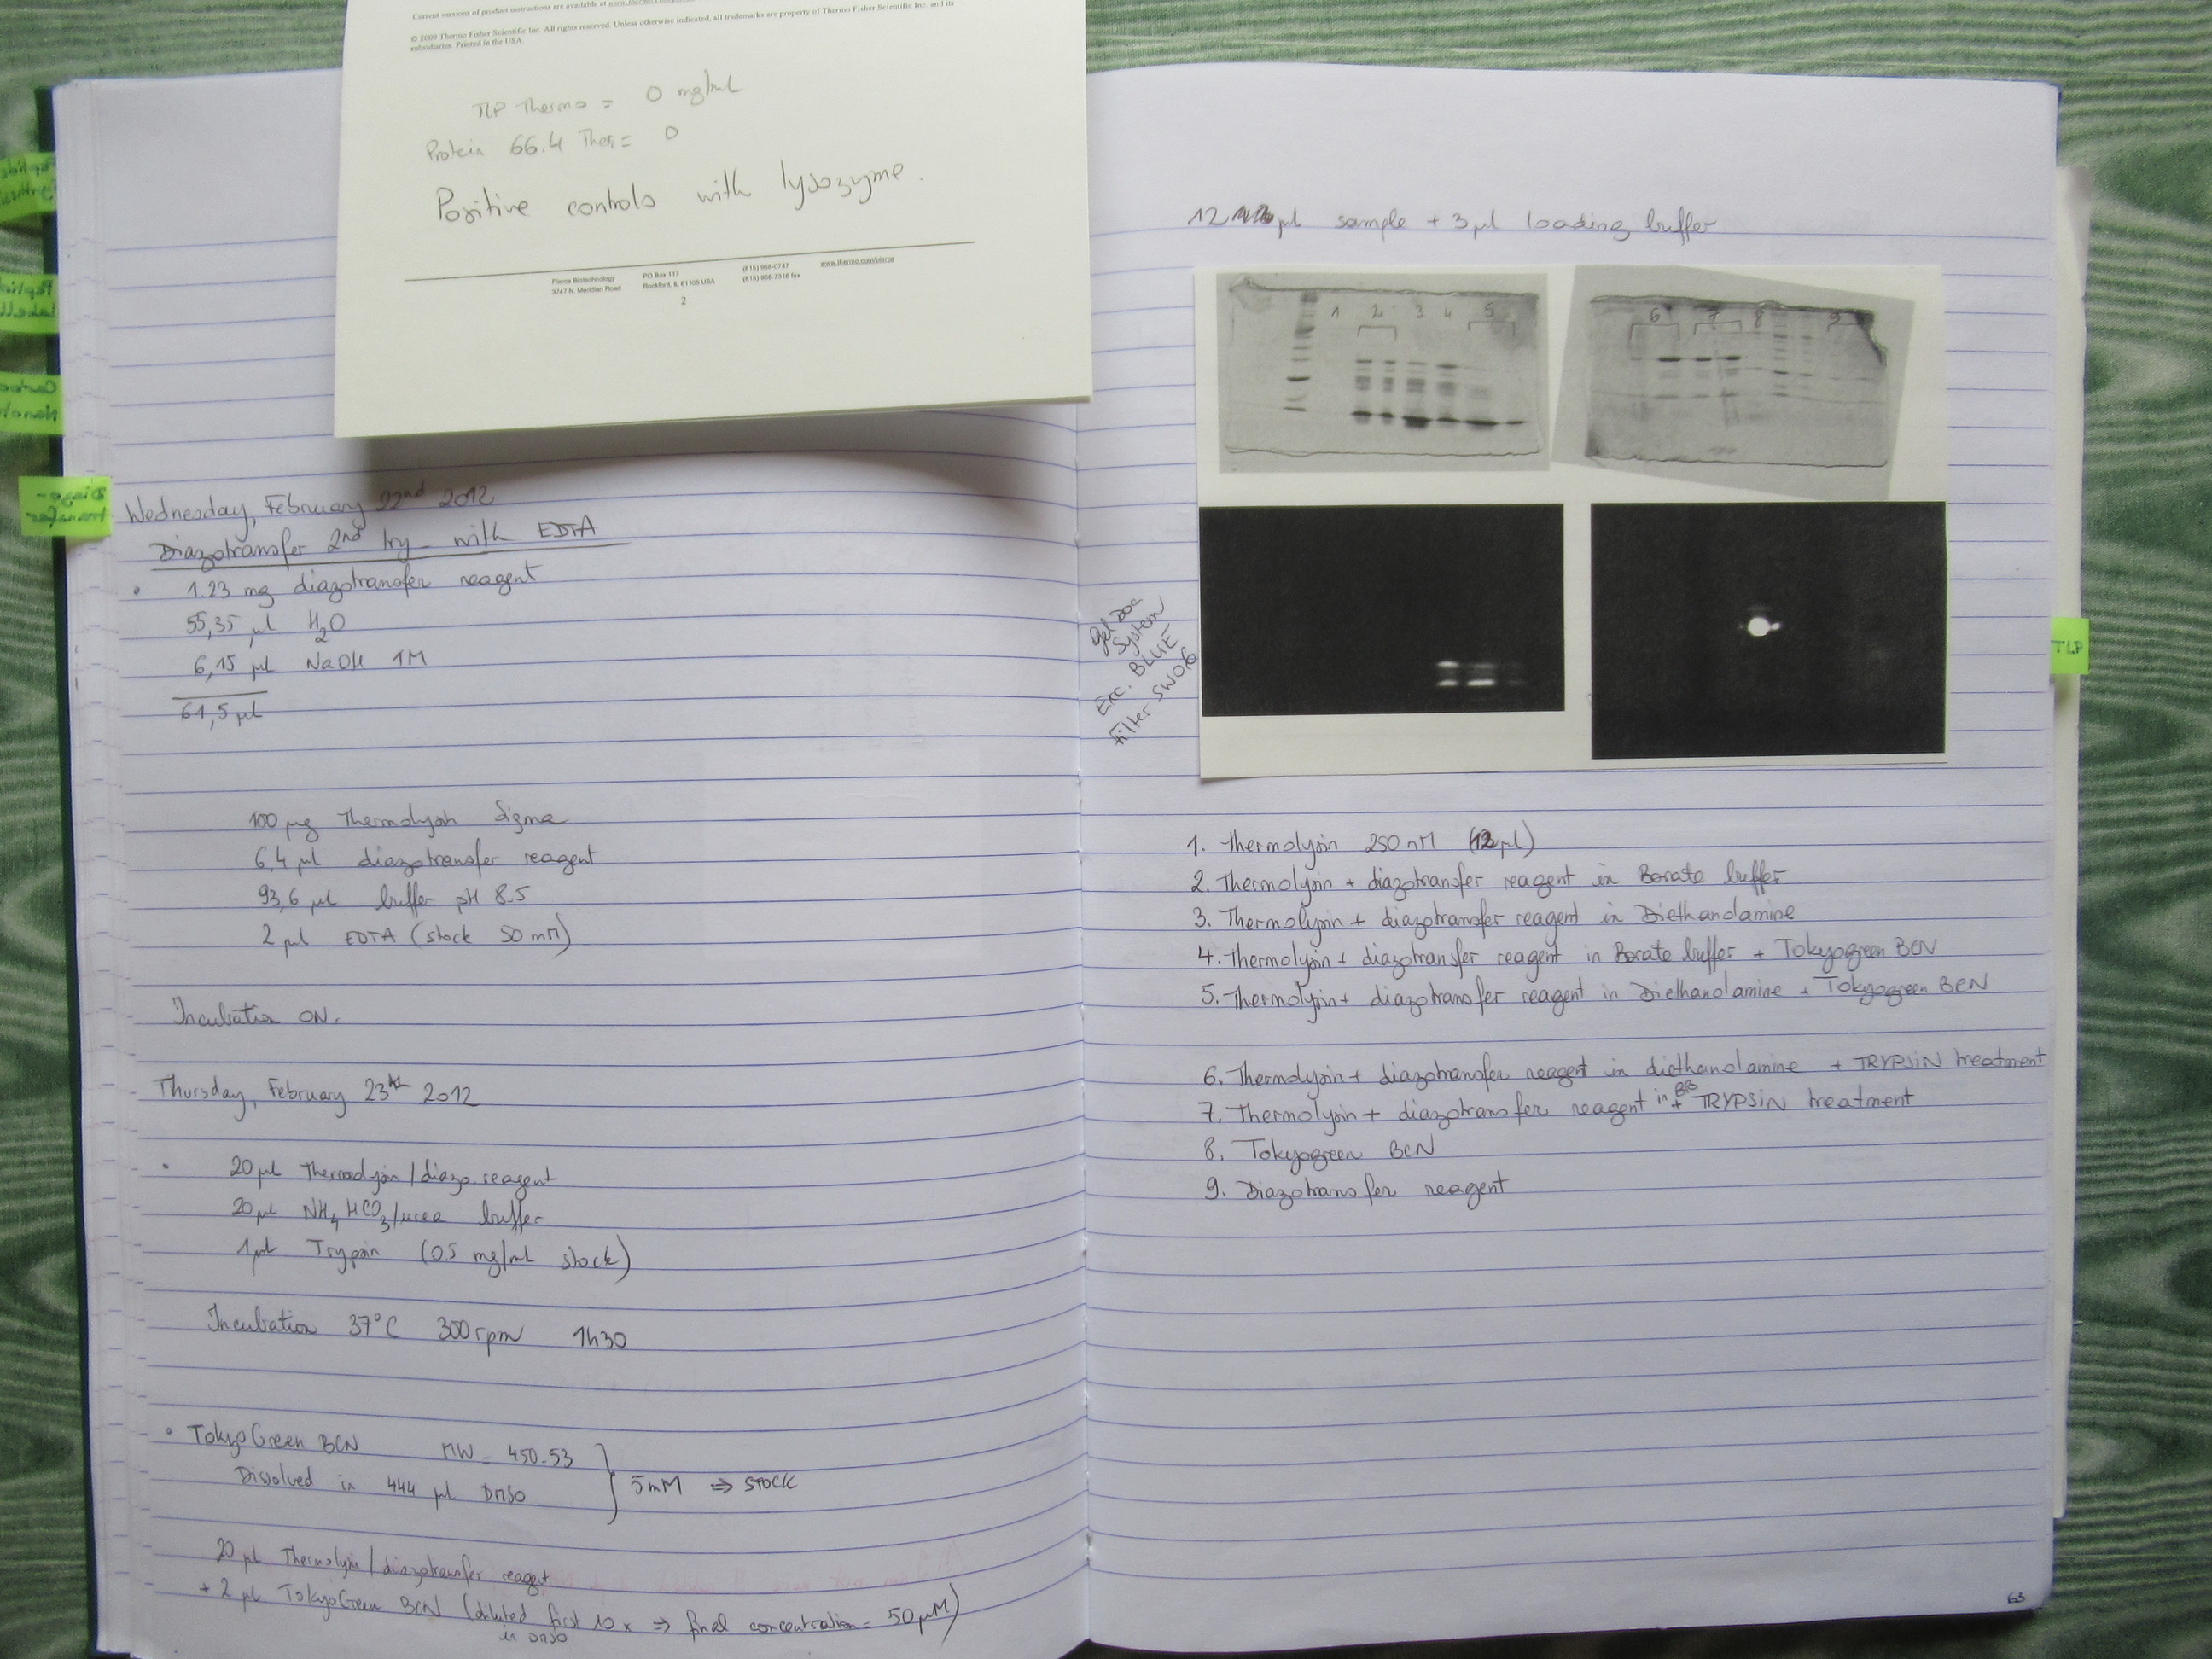 Current versions of product instructions are available at www.thermo.com
© 2009 Thermo Fisher Scientific Inc. All rights reserved. Unless otherwise indicated, all trademarks are property of Thermo Fisher Scientific Inc. and its
subsidiaries. Printed in the USA.
TLP Thermo = 0 mg/mL
Protein 66.4 Ther = 0
Positive controls with lysozyme.
Pierce Biotechnology PO Box 117 (815) 968-0747 www.thermo.com/pierce
3747 N. Meridian Road Rockford, IL 61105 USA (815) 968-7316 fax
2
Diazo-
transfer
Wednesday, February 22nd 2012
Diazotransfer 2nd try - with EDTA
• 1.23 mg diazotransfer reagent
55,35 µl H2O
6,15 µl NaOH 1M
61,5 µl
100 µg Thermolysin Sigma
6,4 µl diazotransfer reagent
93,6 µl buffer pH 8.5
2 µl EDTA (stock 50 mM)
Incubation ON.
Thursday, February 23th 2012
• 20 µl Thermolysin / diazo. reagent
20 µl NH4HCO3/urea buffer
1 µl Trypsin (0.5 mg/ml stock)
Incubation 37°C 300 rpm 1h30
• TokyoGreen BCN MW = 450.53
Dissolved in 444 µl DMSO
5 mM ⇒ STOCK
20 µl Thermolysin / diazotransfer reagent
+ 2 µl TokyoGreen BCN (diluted first 10x ⇒ final concentration = 50 µM)
in DMSO
12 µl sample + 3 µl loading buffer
1 2 3 4 5
6 7 8 9
Gel Doc
System
Exc. BLUE
Filter SW06
TLP
1. Thermolysin 250 nM (12 µl)
2. Thermolysin + diazotransfer reagent in Borate buffer
3. Thermolysin + diazotransfer reagent in Diethanolamine
4. Thermolysin + diazotransfer reagent in Borate buffer + Tokyogreen BCN
5. Thermolysin + diazotransfer reagent in Diethanolamine + Tokyogreen BCN
6. Thermolysin + diazotransfer reagent in diethanolamine + TRYPSIN treatment
7. Thermolysin + diazotransfer reagent in BB + TRYPSIN treatment
8. Tokyogreen BCN
9. Diazotransfer reagent
63